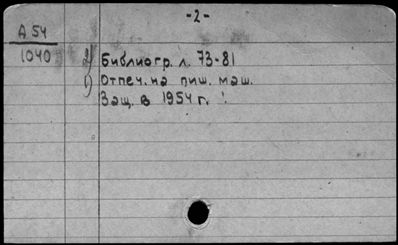 -2-
А 54
1040
2) Библиогр. л. 73-81
1) Отпеч. на пиш. маш.
Защ. в 1954 г.